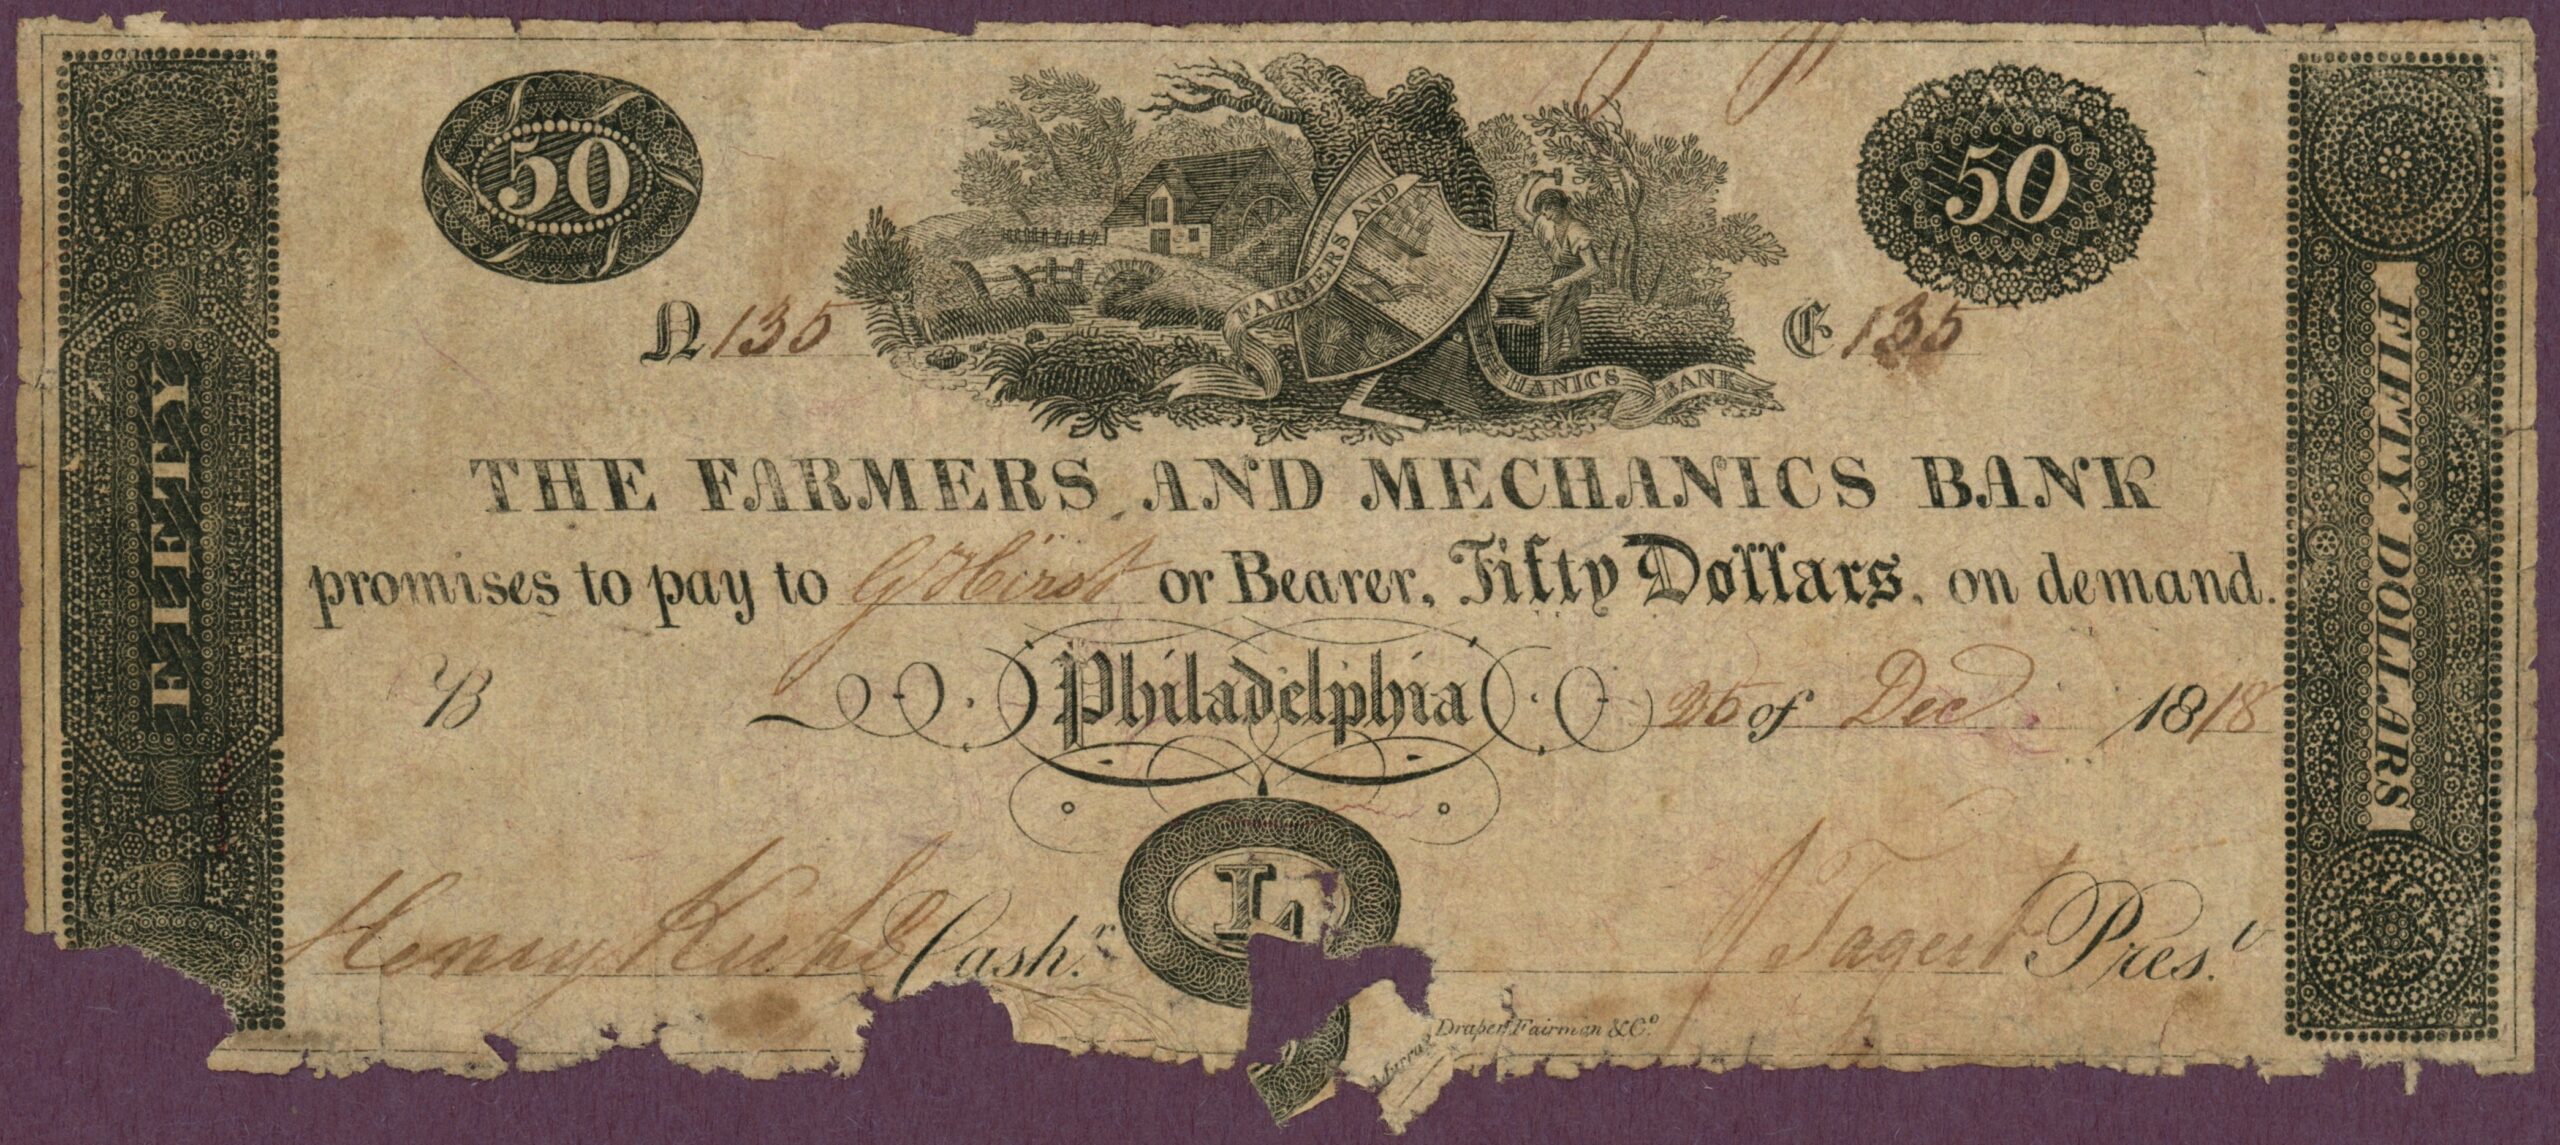 50
50
FARMERS AND
HANICS BANK
N 135
C 135
THE FARMERS AND MECHANICS BANK
promises to pay to G Hirst or Bearer, Fifty Dollars, on demand.
B
Philadelphia 26 of Dec 1818
L
Henry Kuhl Cash.r
J Tagert Pres.t
Murray Draper Fairman & Co.
FIFTY
FIFTY DOLLARS